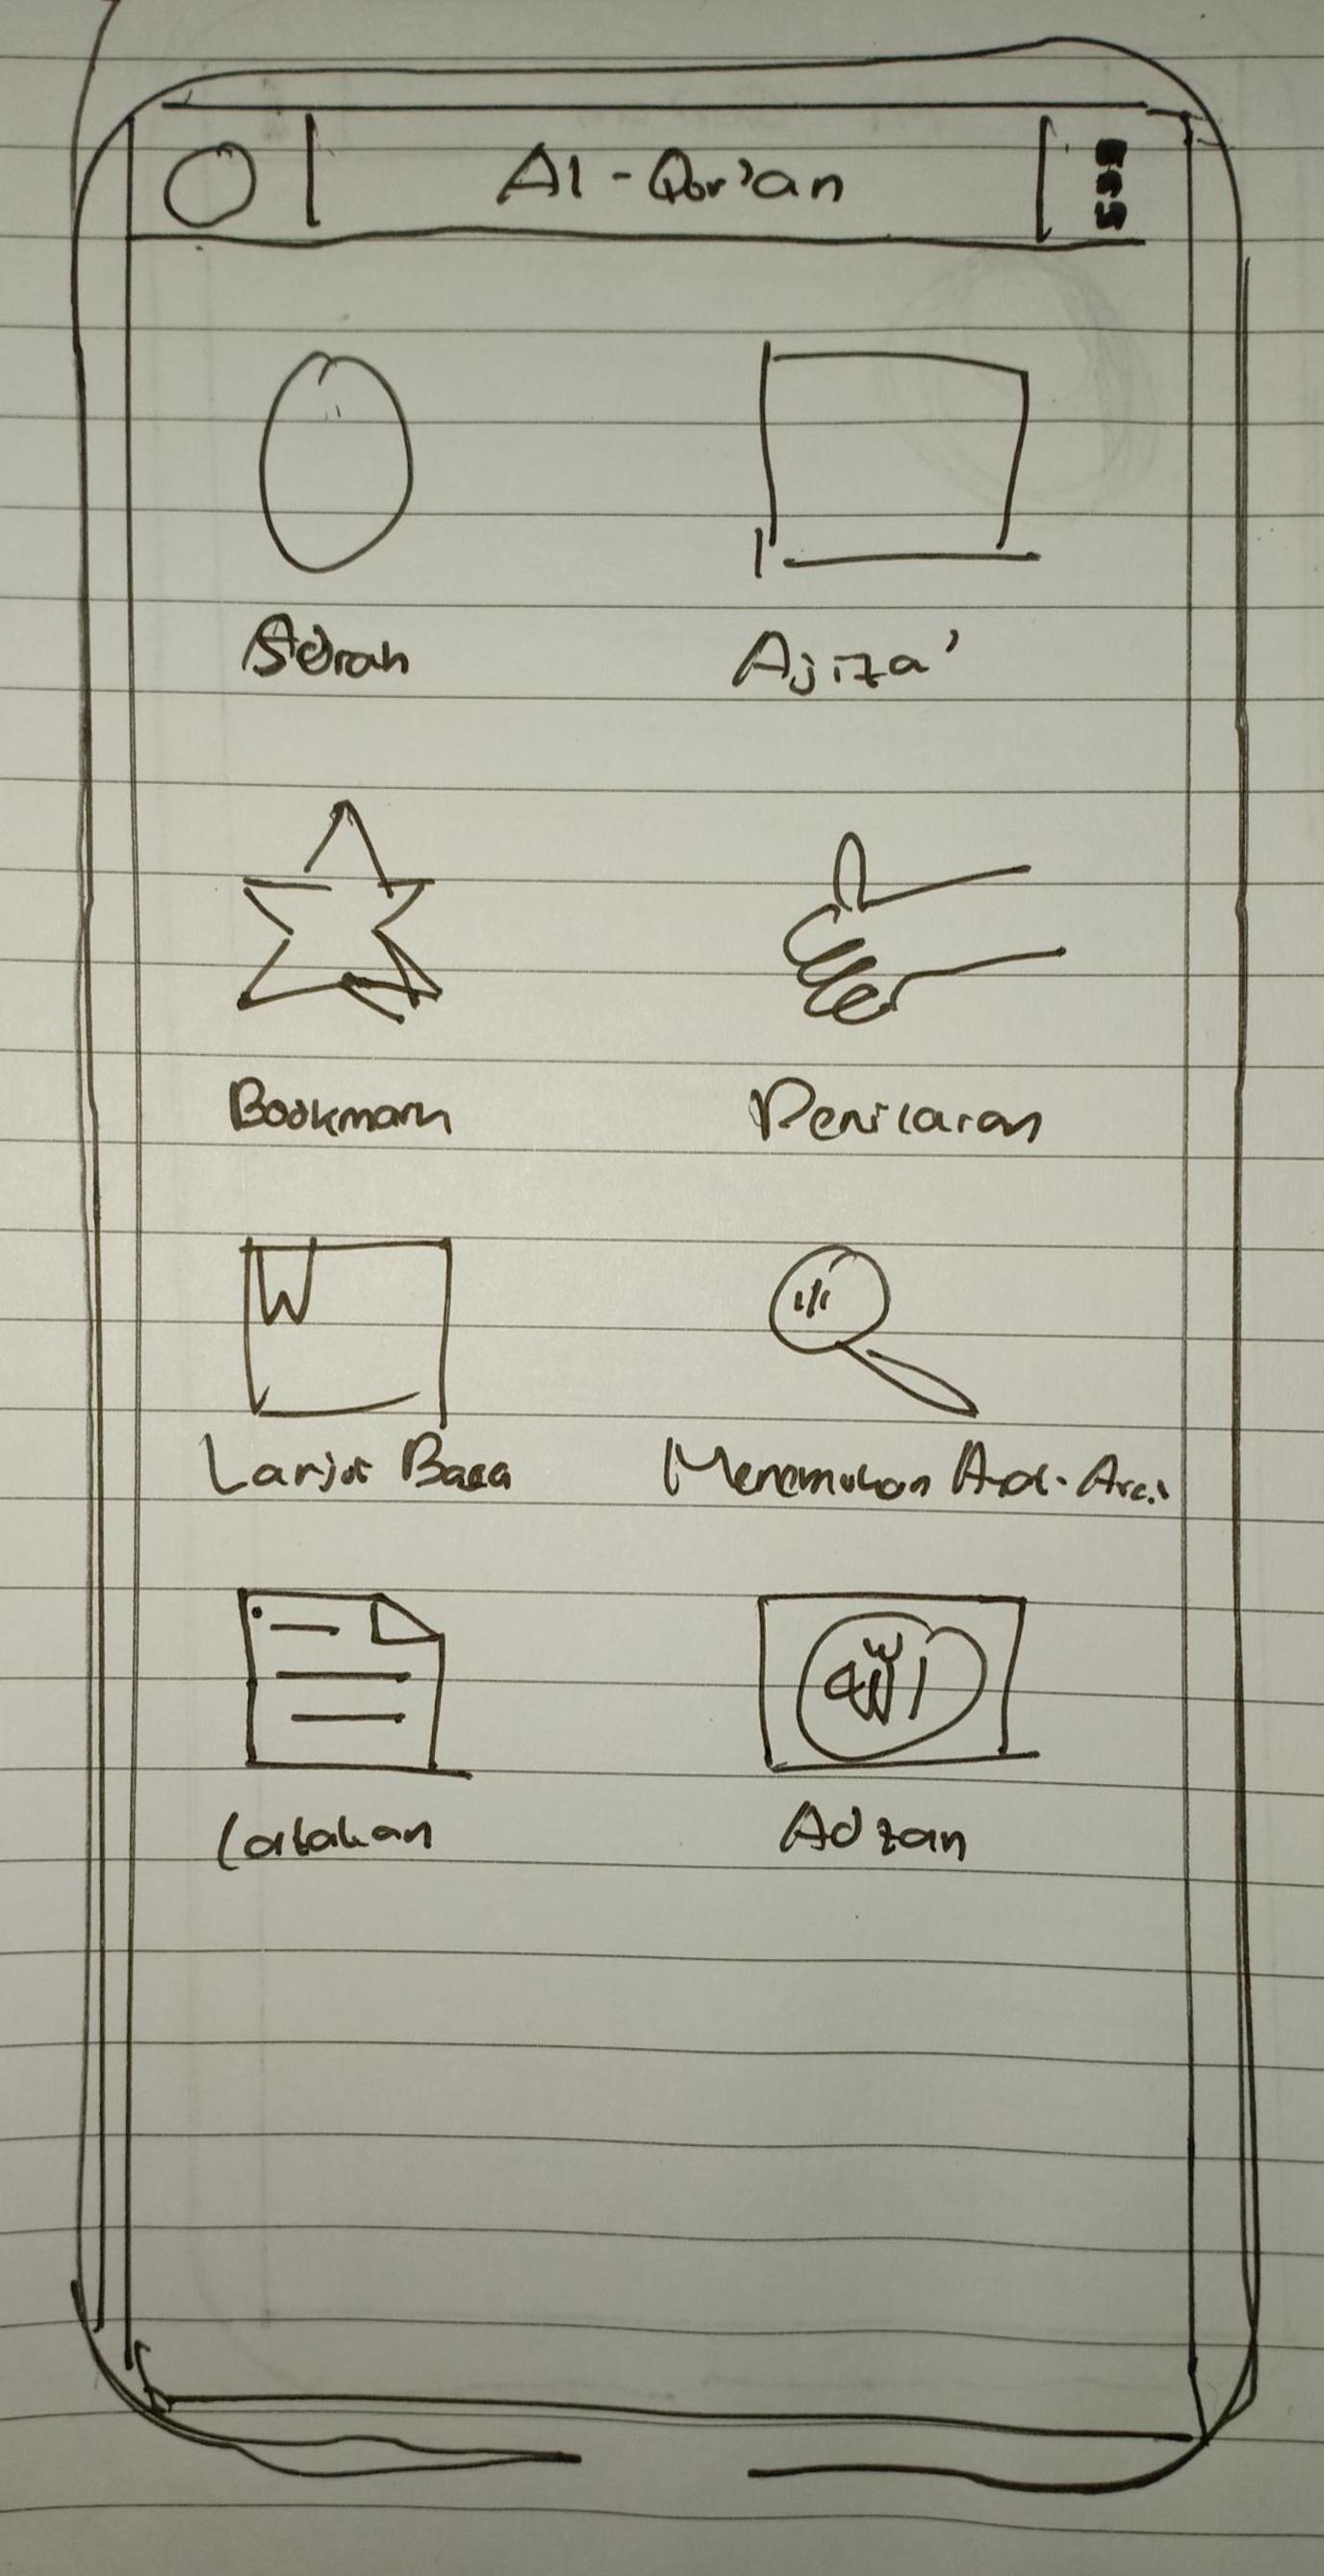 Al-Qur'an
Surah
Ajiza'
Bookmark
Penilaian
W
Lanjut Baca
Menemukan
الله
Catatan
Adzan